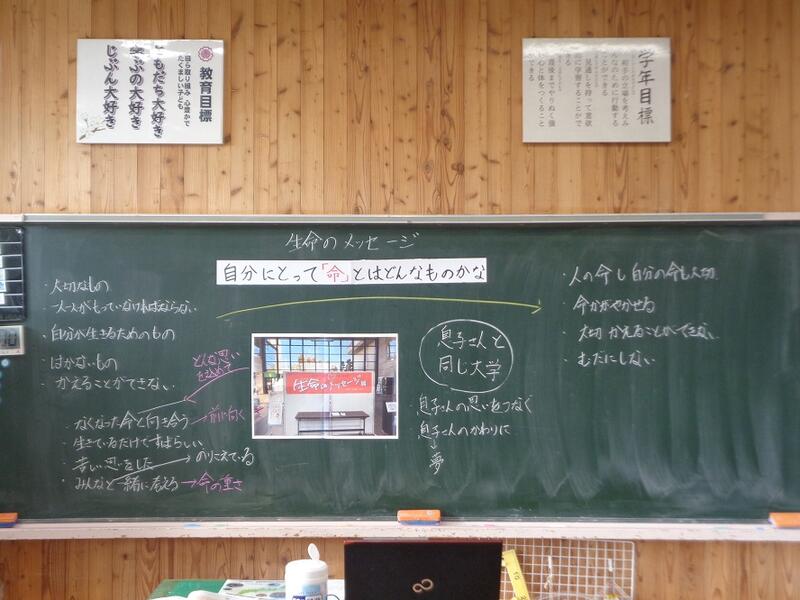 教育目標
自ら取り組み、心豊かで
たくましい子ども
ともだち大好き
学ぶの大好き
じぶん大好き
学年目標
相手の立場を考えみ
んなのために行動する
ことができる
見通しを持って意欲
的に学習することがで
きる
最後までやりぬく強
い心と体をつくること
ができる
生命のメッセージ
自分にとって「命」とはどんなものかな
・大切なもの
・一人一人がもっていなければならない
・自分が生きるためのもの
・はかないもの
・かえることができない
どんな思い
を込めて
・なくなった命と向き合う→前に向く
・生きているだけですばらしい
・辛い思いをした→のりこえている
・みんなと一緒に考える→命の重さ
生命のメッセージ展
息子さんと
同じ大学
・息子さんの思いをつなぐ
・息子さんのかわりに
夢
・人の命も自分の命も大切
・命かがやかせる
・大切 かえることができない
・むだにしない